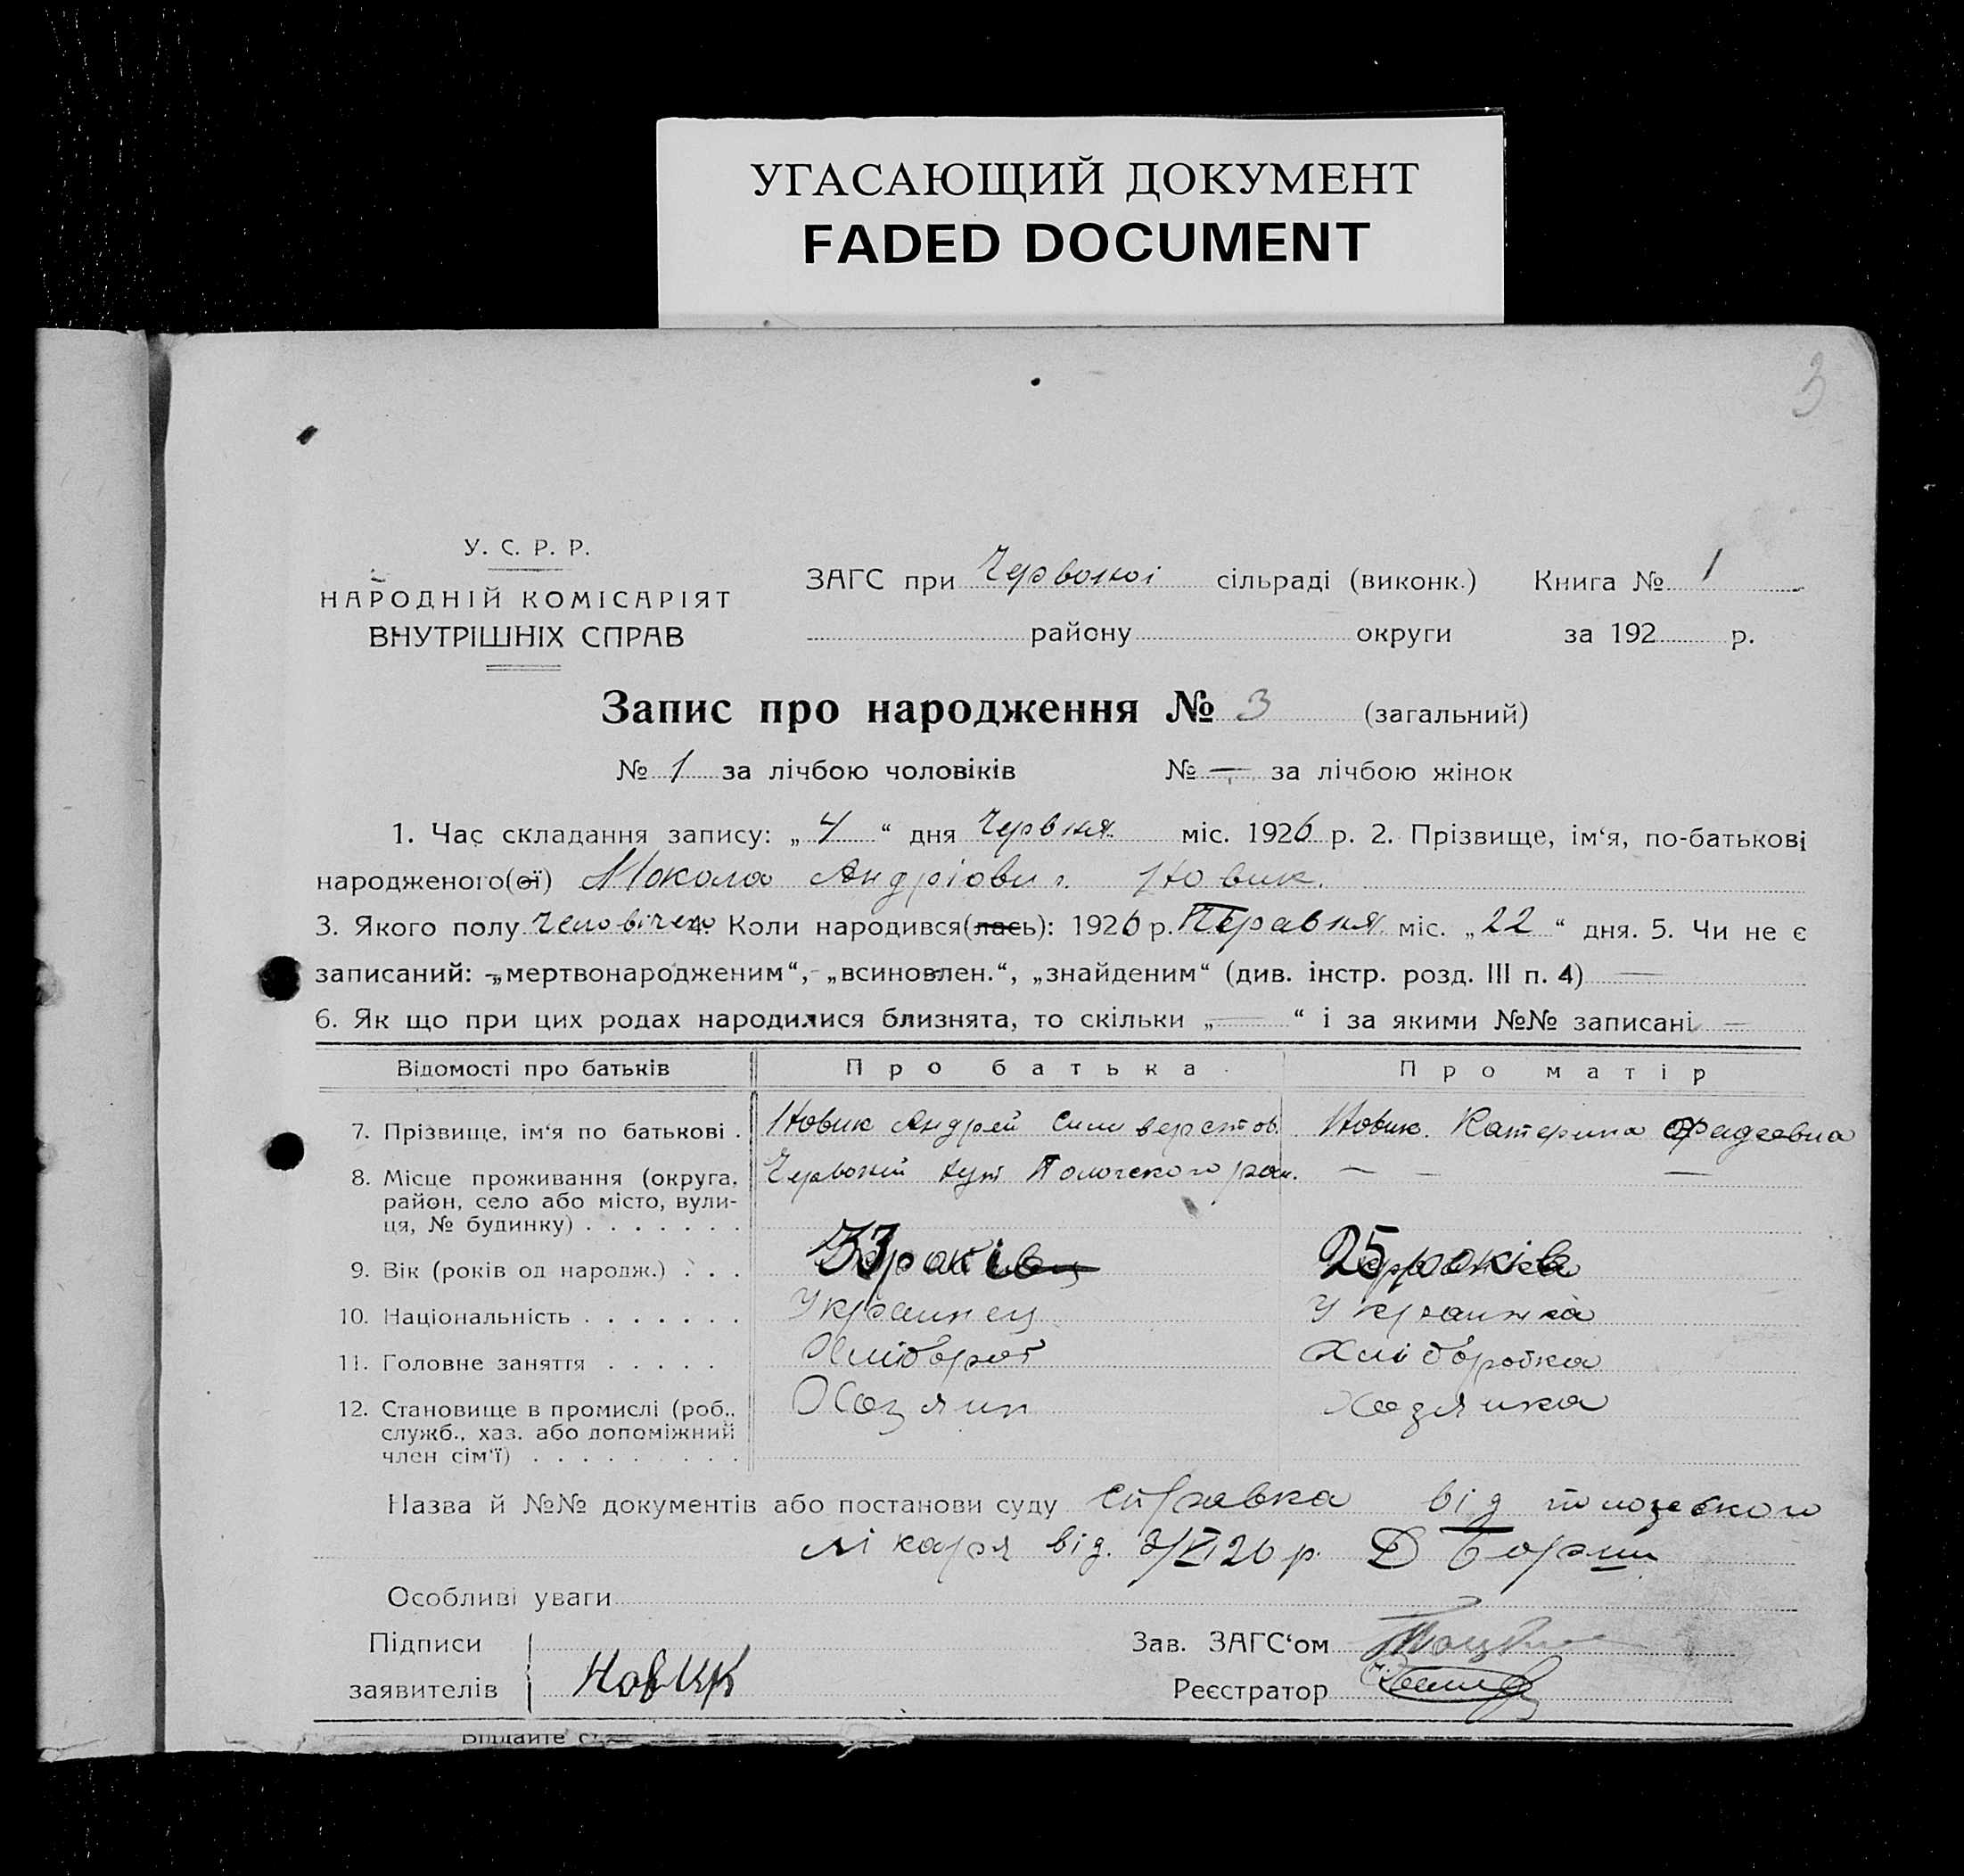 УГАСАЮЩИЙ ДОКУМЕНТ
FADED DOCUMENT
3
У. С. Р. Р.
НАРОДНІЙ КОМІСАРІЯТ
ВНУТРІШНІХ СПРАВ
ЗАГС при Червоної сільраді (виконк.) Книга № 1
району округи за 192 р.
Запис про народження № 3 (загальний)
№ 1 за лічбою чоловіків № — за лічбою жінок
1. Час складання запису: „ 4 “ дня Червня міс. 1926 р. 2. Прізвище, ім‘я, по-батькові
народженого(ої) Микола Андріович Новик.
3. Якого полу человічего 4. Коли народився(лась): 1926 р. Травня міс. „ 22 “ дня. 5. Чи не є
записаний: „мертвонародженим“, „всиновлен.“, „знайденим“ (див. інстр. розд. III п. 4) —
6. Як що при цих родах народилися близнята, то скільки „ — “ і за якими №№ записані —
Відомості про батьків Про батька Про матір
7. Прізвище, ім‘я по батькові . Новик Андрей Силиверстов. Новик. Катерина Фадеевна
8. Місце проживання (округа, Червоній Кут Пологского рай. — — —
район, село або місто, вули-
ця, № будинку) . . . . . . .
9. Вік (років од народж.) . . . 33 років 25 років
10. Національність . . . . . . . Украинец Украинка
11. Головне заняття . . . . . Хлібороб Хліборобка
12. Становище в промислі (роб., Хозяин Хозяика
служб., хаз. або допоміжний
член сім‘ї) . . . . . . . . .
Назва й №№ документів або постанови суду справка від
лікаря від. /VI 26 р.
Особливі уваги
Підписи Зав. ЗАГС‘ом
заявителів Новик Реєстратор